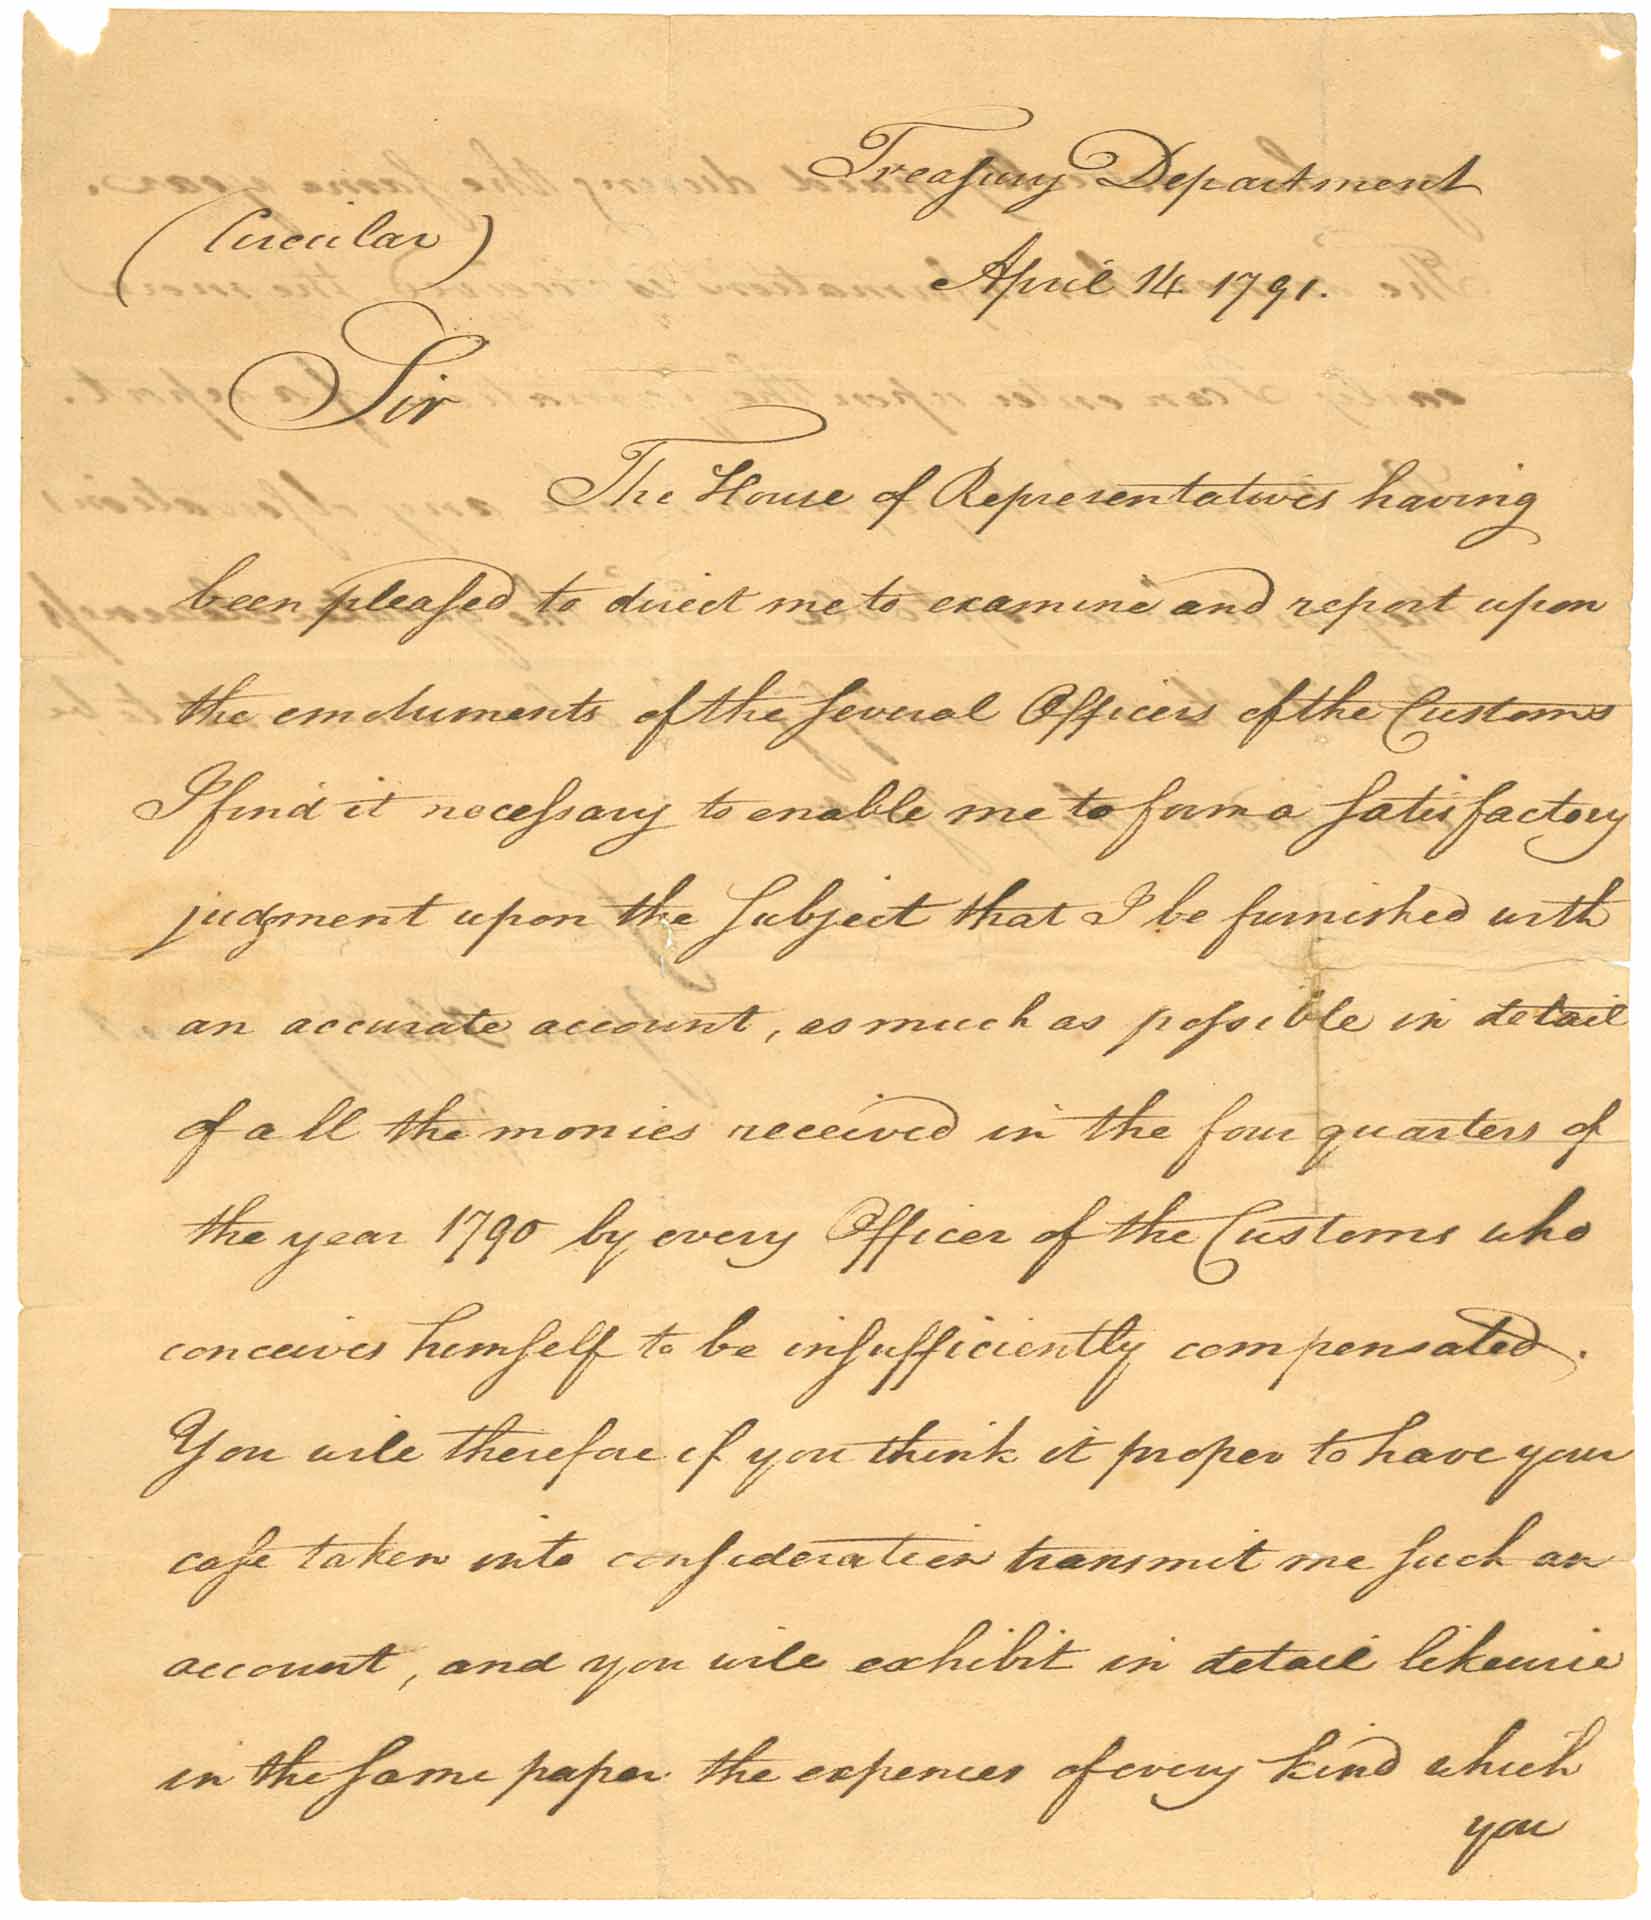 Treasury Department
(Circular)
April 14 1791.
Sir
The House of Representatives having
been pleased to direct me to examine and report upon
the emoluments of the several Officers of the Customs
I find it necessary to enable me to form a satisfactory
judgment upon the subject that I be furnished with
an accurate account, as much as possible in detail
of all the monies received in the four quarters of
the year 1790 by every Officer of the Customs who
conceives himself to be insufficiently compensated.
You will therefore if you think it proper to have your
case taken into consideration transmit me such an
account, and you will exhibit in detail likewise
in the same paper the expences of every kind which
you